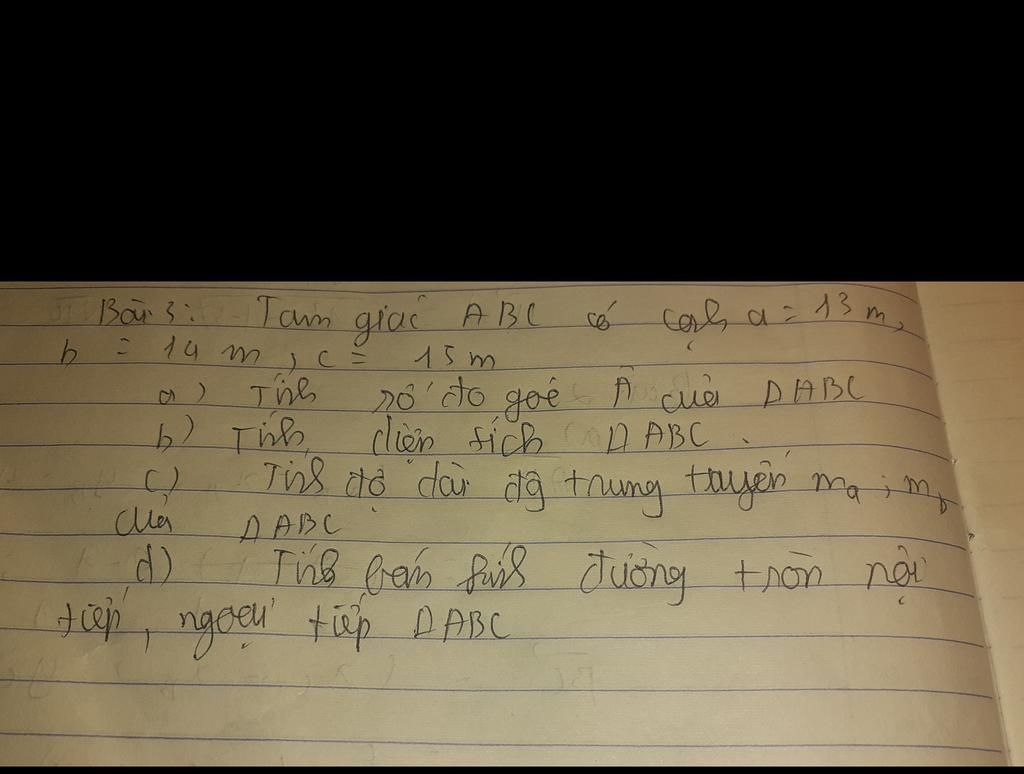 Bài 3: Tam giác ABC có cạnh a = 13 m,
b = 14 m, c = 15 m
a) Tính số đo góc Â của ΔABC
b) Tính diện tích ΔABC.
c) Tính độ dài đg trung tuyến ma; mb
của ΔABC
d) Tính bán kính đường tròn nội
tiếp, ngoại tiếp ΔABC